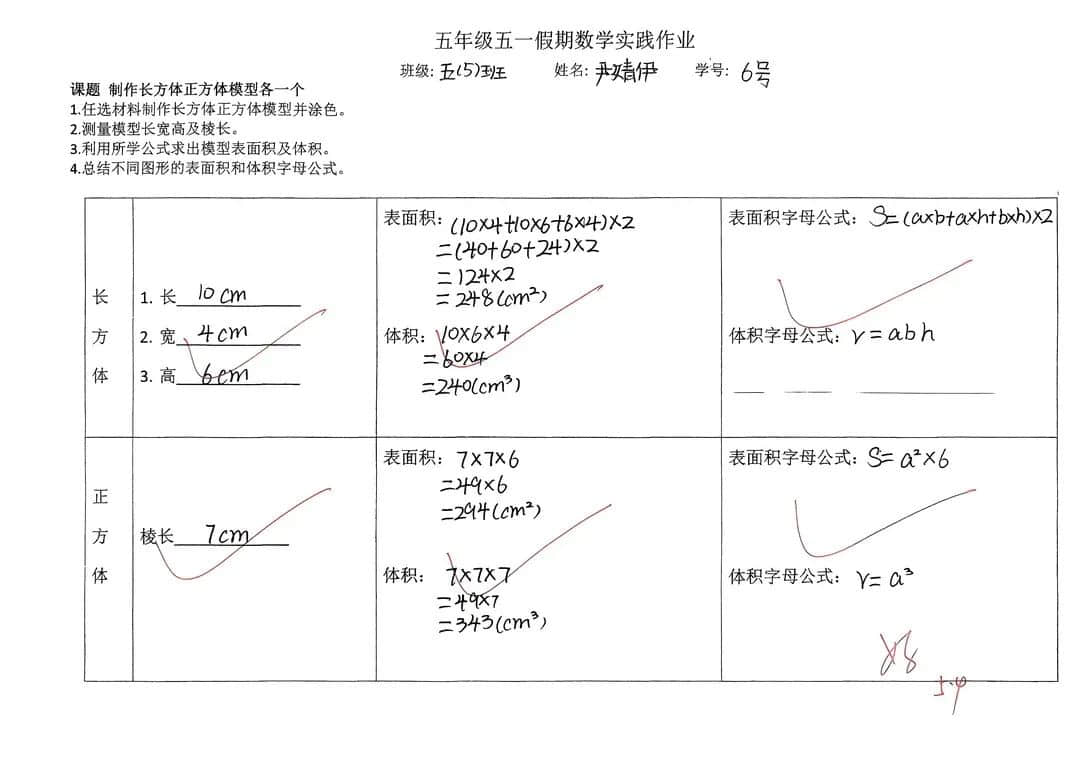 五年级五一假期数学实践作业
班级: 五(5)班 姓名: 尹婧伊 学号: 6号
课题 制作长方体正方体模型各一个
1.任选材料制作长方体正方体模型并涂色。
2.测量模型长宽高及棱长。
3.利用所学公式求出模型表面积及体积。
4.总结不同图形的表面积和体积字母公式。
长方体
1. 长 10cm
2. 宽 4cm
3. 高 6cm
表面积: (10×4+10×6+6×4)×2
=(40+60+24)×2
=124×2
=248(cm²)
体积: 10×6×4
=60×4
=240(cm³)
表面积字母公式: S=(a×b+a×h+b×h)×2
体积字母公式: V=abh
正方体
棱长 7cm
表面积: 7×7×6
=49×6
=294(cm²)
体积: 7×7×7
=49×7
=343(cm³)
表面积字母公式: S=a²×6
体积字母公式: V=a³
5.4